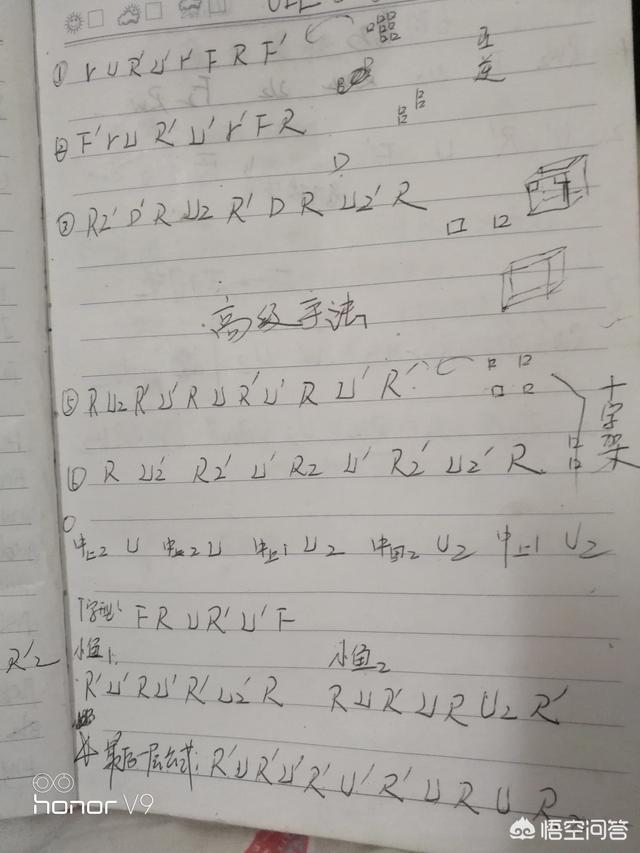 ① r U R' U' r' F R F'
互
逆
② F' r U R' U' r' F R
D
③ R2' D' R U2 R' D R U2' R
高级手法
⑤ R U2 R' U' R U R' U' R U' R'
十字架
⑥ R U2' R2' U' R2 U' R2' U2' R
中上2 U 中上2 U 中上1 U2 U2 中上1 U2
T字型: F R U R' U' F
小鱼1. 小鱼2
R'2
R' U' R U' R' U2' R R U R' U R U2 R'
最后一层公式: R' U R' U' R' U' R' U R U R2
honor V9
悟空问答